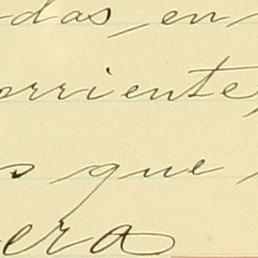 das, en
orriente,
s que
era